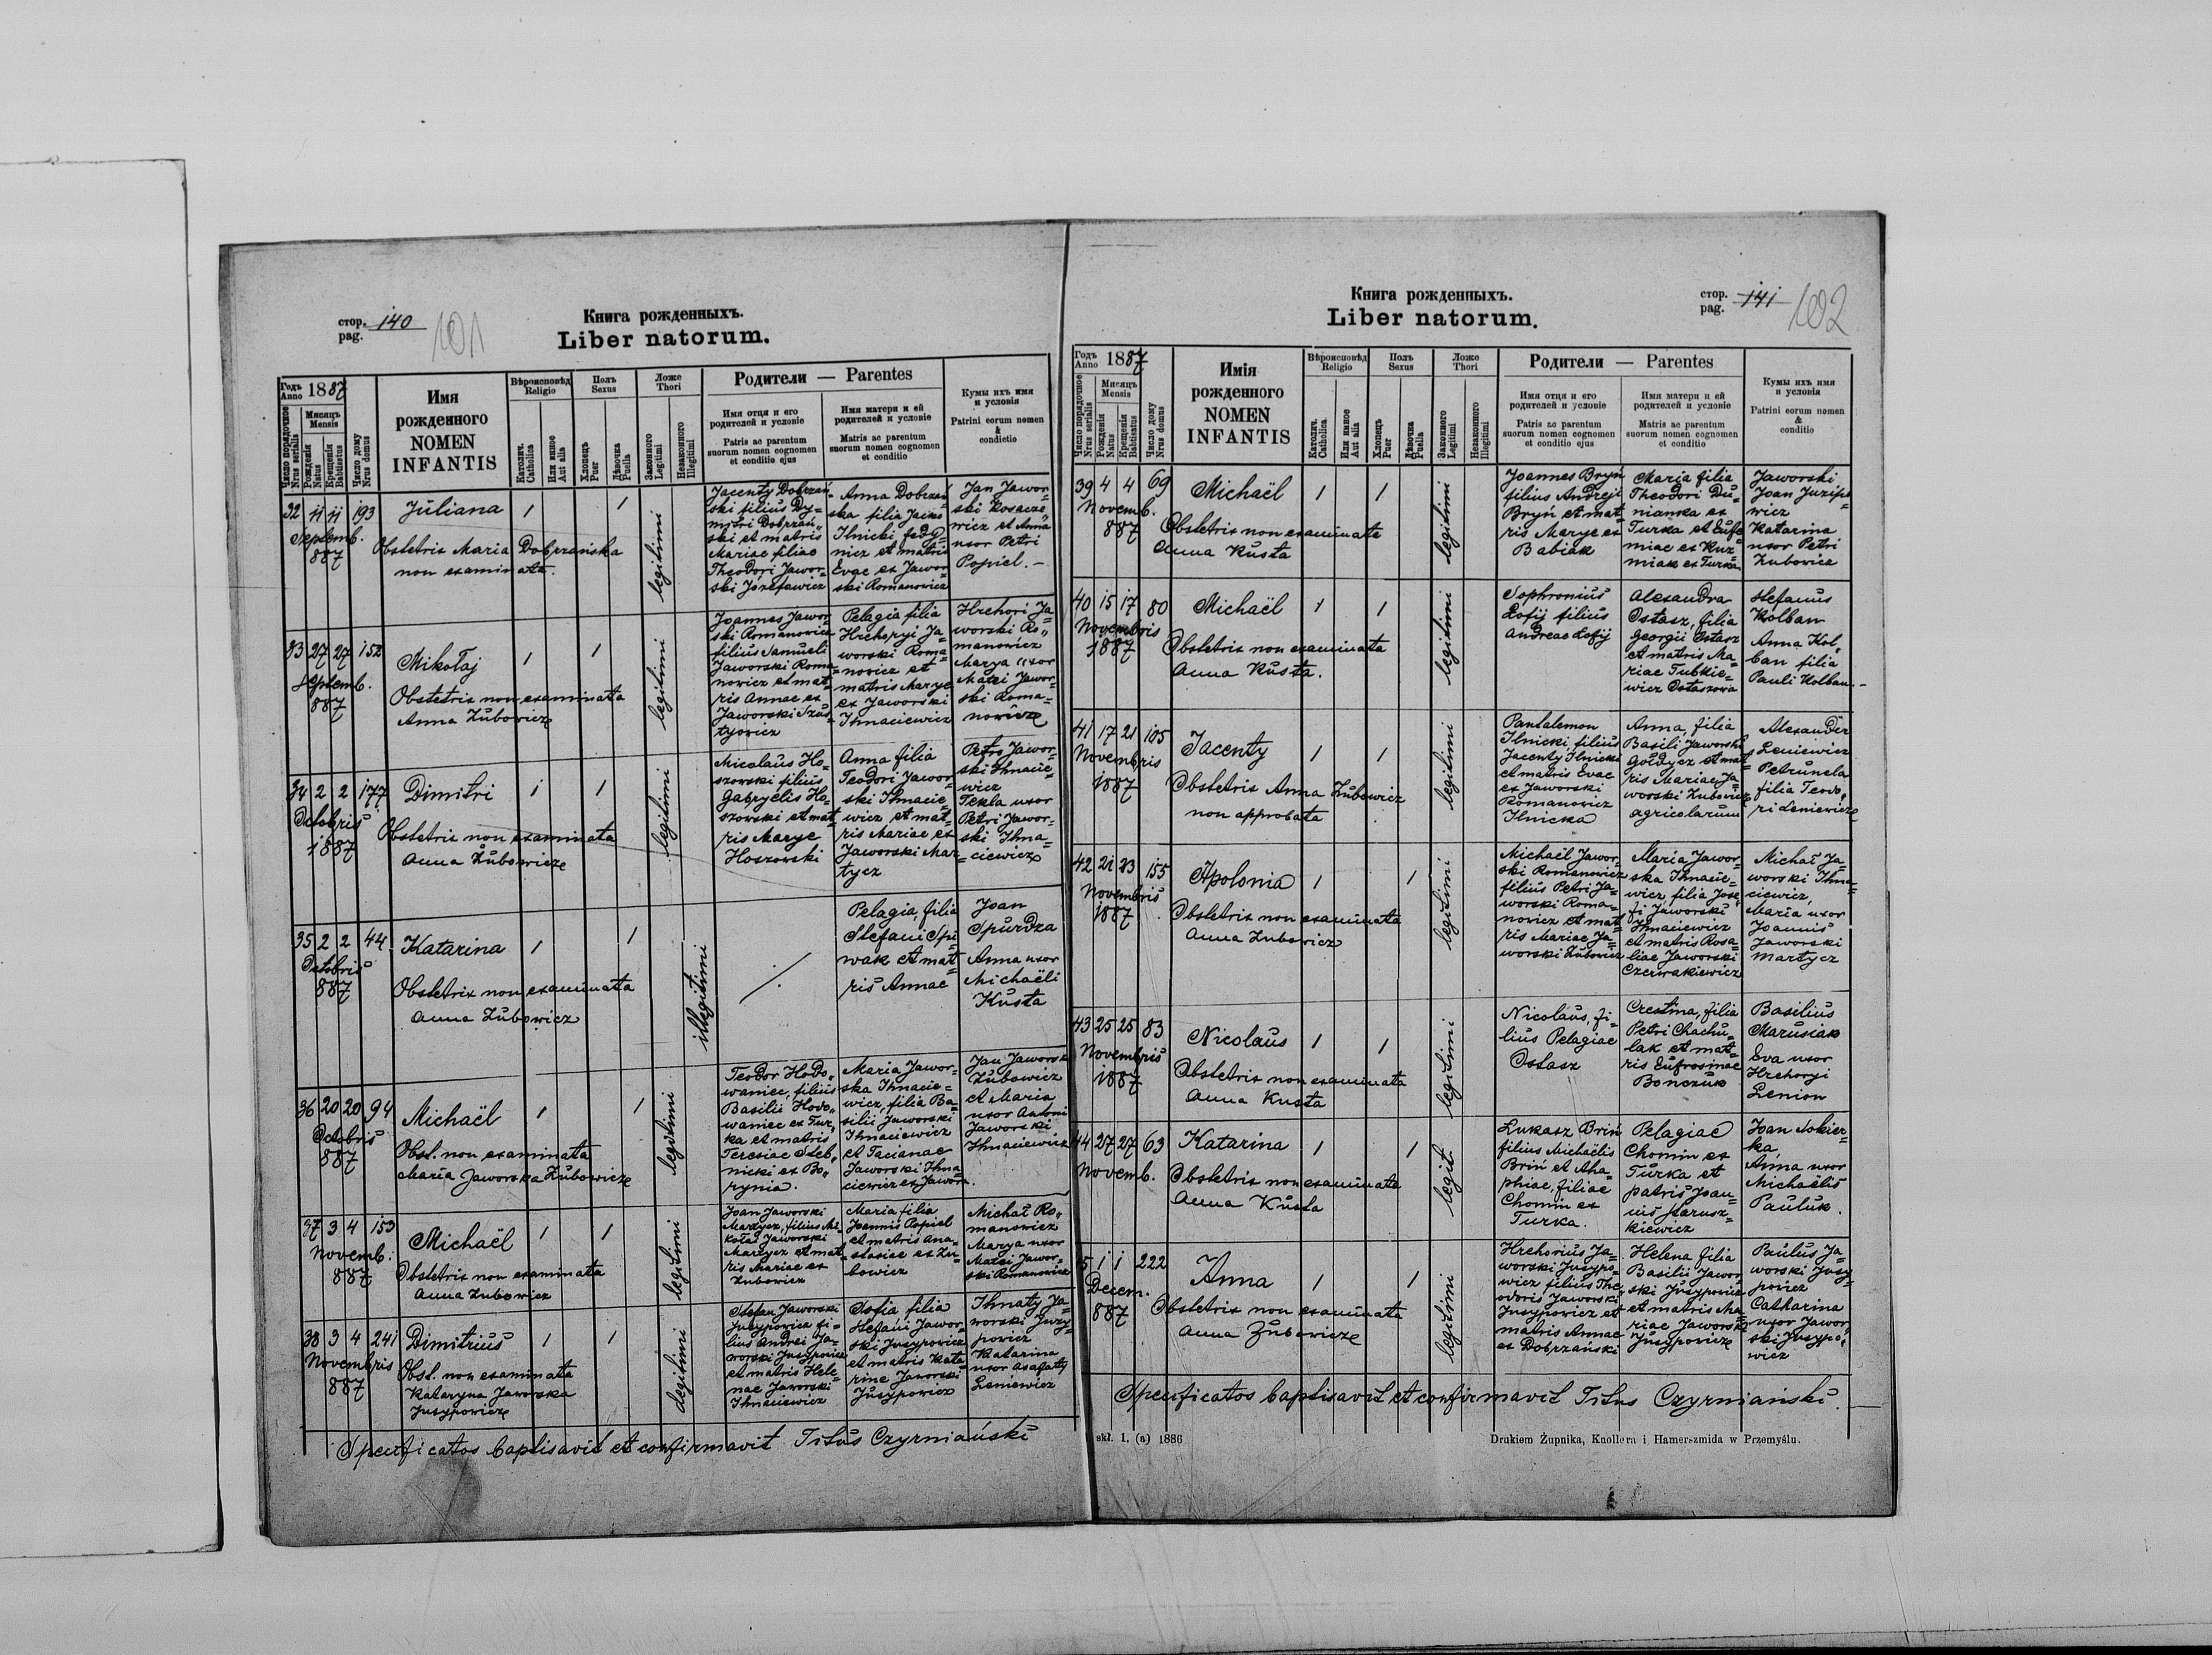 стор. 140 101
pag.
Книга рожденныхъ.
Liber natorum.
Годъ 1887
Anno
Число порядочное
Nrus serialis
Мясяцъ
Mensis
Рожденія
Natus
Крещенія
Babtisatus
Число дому
Nrus domus
Имя
рожденного
NOMEN
INFANTIS
Вѣроисповѣд
Religio
Католич.
Catholica
Или инное
Aut alia
Полъ
Sexus
Хлопецъ
Puer
Дѣвочка
Puella
Ложе
Thori
Законного
Legitimi
Незаконного
Illegitimi
Родители — Parentes
Имя отця и его
родителей и условіе
Patris ac parentum
suorum nomen cognomen
et conditio ejus
Имя матери и ей
родителей и условіе
Matris ac parentum
suorum nomen cognomen
et conditio
Кумы ихъ имя
и условія
Patrini eorum nomen
&
condictio
32 11 11 193
Septemb.
887
Juliana
1 1
Obstetrix Maria Dobrzańska
non examinata.
legitimi
Jacenty Dobrzań-
ski filius Dy=
mitri Dobrzań„
ski et matris
Mariae filiae
Theodori Jawor=
ski Józefowicz
Anna Dobrzań
ska filia Jacin
Ilnicki fedy=
nicz et matris
Evae ex Jawor=
ski Romanowicz
Jan Jawor=
ski Kosacze„
wicz et Anna
uxor Petri
Popiel. —
33 27 27 152
Septemb.
887
Mikołaj
1 1
Obstetrix non examinata
Anna Zubowicz
legitimi
Joannes Jawor
ski Romanowicz
filius Samueli
Jaworski Roma=
nowicz et mat=
ris Annae ex
Jaworski Szus=
tyowicz
Pelagia filia
Hrehoryi Ja=
worski Roma=
nowicz et
matris Marye
ex Jaworski
Ihnaciewicz
Hrehori Ja
worski Ro„
manowicz
Marya uxor
Matei Jawor=
ski Roma=
nowicz
34 2 2 177
Octobris
1887
Dimitri
1 1
Obstetrix non examinata
Anna Zubowicz
legitimi
Micolaus Ho=
szowski filius
Gabryelis Ho=
szowski et mat=
ris Marye
Hoszowski
Anna filia
Teodori Jawor
ski Ihnacie=
wicz et mat=
ris Mariae ex
Jaworski Mar=
tycz
Petro Jawor=
ski Ihnacie=
wicz
Tekla uxor
Petri Jawor=
ski Ihna=
ciewicz
35 2 2 44
Octobris
887
Katarina
1 1
Obstetrix non examinata
Anna Zubowicz
illegitimi
Pelagia, filia
Stefani Spi=
wak et mat=
ris Annae
Joan
Spurdza
Anna uxor
Michaëli
Kusta
36 20 20 94
Octobris
887
Michaël
1 1
Obst. non examinata
Maria Jaworska Zubowicz
legitimi
Teodor Hodo„
waniec, filius
Basilii Hodo„
waniec ex Tur„
ka et matris
Teresiae Steb„
nicki ex Bo„
rynia.
Maria Jawor=
ska Ihnacie=
wicz, filia Ba=
silii Jaworski
Ihnaciewicz
et Tacianae
Jaworski Ihna=
ciewicz ex Jawora.
Jan Jaworski
Zubowicz
et Maria
uxor Antoni
Jaworski
Ihnaciewicz
37 3 4 153
Novemb.
887
Michaël
1 1
Obstetrix non examinata
Anna Zubowicz
legitimi
Joan Jaworski
Martycz, filius Mi„
kołai Jaworski
Martycz et mat=
ris Mariae ex
Zubowicz
Maria filia
Joannis Popiel
et matris Ana=
stasiae ex Zu=
bowicz
Michał Ro„
manowicz
Marya uxor
Matei Jawor=
ski Romanowicz
38 3 4 241
Novembris
887
Dimitrius
1 1
Obst. non examinata
Kataryna Jaworska
Jusypowicz
legitimi
Stefan Jaworski
Jusypowicz fi=
lius Andrei Ja=
worski Jusypowicz
et matris Hele=
nae Jaworski
Ihnaciewicz
Sofia filia
Stefani Jawor=
ski Jusypowicz
et matris Kata=
rine Jaworski
Jusypowicz
Ihnaty Ja=
worski Juzy=
powicz
Katarina
uxor Asafaty
Leniewicz
Specificatos baptisavit et confirmavit Titus Czyrniański
Книга рожденныхъ.
Liber natorum.
стор. 141 102
pag.
Годъ 1887
Anno
Число порядочное
Nrus serialis
Мясяцъ
Mensis
Рожденія
Natus
Крещенія
Babtisatus
Число дому
Nrus domus
Имія
рожденного
NOMEN
INFANTIS
Вѣроисповѣд
Religio
Католич.
Catholica
Или инное
Aut alia
Полъ
Sexus
Хлопецъ
Puer
Дѣвочка
Puella
Ложе
Thori
Законного
Legitimi
Незаконного
Illegitimi
Родители — Parentes
Имя отця и его
родителей и условіе
Patris ac parentum
suorum nomen cognomen
et conditio ejus
Имя матери и ей
родителей и условіе
Matris ac parentum
suorum nomen cognomen
et conditio
Кумы ихъ имя
и условія
Patrini eorum nomen
&
conditio
39 4 4 69
Novemb.
887
Michaël
1 1
Obstetrix non examinata
Anna Kusta
legitimi
Joannes Bryń
filius Andreji
Bryń et mat=
ris Marye ex
Babiak
Maria filia
Theodori Du=
nianka ex
Turka et Eufe
miae ex Kuz=
miak ex Turka
Jaworski
Joan Juzipo
wicz
Katarina
uxor Petri
Zubowicz
40 15 17 80
Novembris
1887
Michaël
1 1
Obstetrix non examinata
Anna Kusta.
legitimi
Sophronius
Łofij filius
Andreae Łofij
Alexandra
Ostasz, filia
Georgii Ostasz
et matris Ma=
riae Tubkie=
wicz Ostaszowa
Stefanus
Kolban
Anna Kol„
ban filia
Pauli Kolban.—
41 17 21 105
Novembris
1887
Jacenty
1 1
Obstetrix Anna Zubowicz
non approbata
legitimi
Pantalemon
Ilnicki filius
Jacenty Ilnicki
et matris Evae
ex Jaworski
Romanowicz
Ilnicka
Anna, filia
Basili Jaworski
Gołdycz et mat=
ris Mariae Ja=
worski Zubowicz
agricolarum
Alexander
Leniewicz
Petrunela
filia Teodo„
ri Leniewicz
42 21 23 155
Novembris
1887
Apolonia
1 1
Obstetrix non examinata
Anna Zubowicz
legitimi
Michaël Jawor=
ski Romanowicz
filius Petri Ja=
worski Roma=
nowicz et mat=
ris Mariae Ja=
worski Zubowicz
Maria Jawor=
ska Ihnacie=
wicz filia Jose=
fi Jaworski
Ihnaciewicz
et matris Rosa=
liae Jaworski
Czerwakiewicz
Michał Ja=
worski Ihna=
ciewicz,
Maria uxor
Joannis
Jaworski
Martycz
43 25 25 83
Novembris
1887
Nicolaus
1 1
Obstetrix non examinata
Anna Kusta
legitimi
Nicolaus, fi=
lius Pelagiae
Ostasz
Crestina, filia
Petri Chachu=
lak et mat=
ris Eufrosinae
Bonczuk
Basilius
Marusiak
Eva uxor
Hrehoryi
Lenion
44 27 27 63
Novemb.
Katarina
1 1
Obstetrix non examinata
Anna Kusta
legit.
Lukasz Briń
filius Michaëlis
Briń et Aha=
phiae, filiae
Chomin ex
Turka.
Pelagiae
Chomin ex
Turka et
patris Joan=
nis Starusz=
kiewicz
Joan Sokier=
ka,
Anna uxor
Michaëlis
Pauluk.
45 1 1 222
Decem.
887
Anna
1 1
Obstetrix non examinata
Anna Zubowicz
legitimi
Hrehorius Ja=
worski Jusypo=
wicz filius The
odoris Jaworski
Jusypowicz et
matris Annae
ex Dobrzański
Helena filia
Basilii Jawor=
ski Jusypowicz
et matris Ma=
riae Jaworski
Jusypowicz
Paulus Ja=
worski Jusy=
powicz
Catharina
uxor Jawor„
ski Jusypo„
wicz
Specificatos baptisavit et confirmavit Titus Czyrniański.
skł. 1. (a) 1886
Drukiem Żupnika, Knollera i Hamerszmida w Przemyślu.